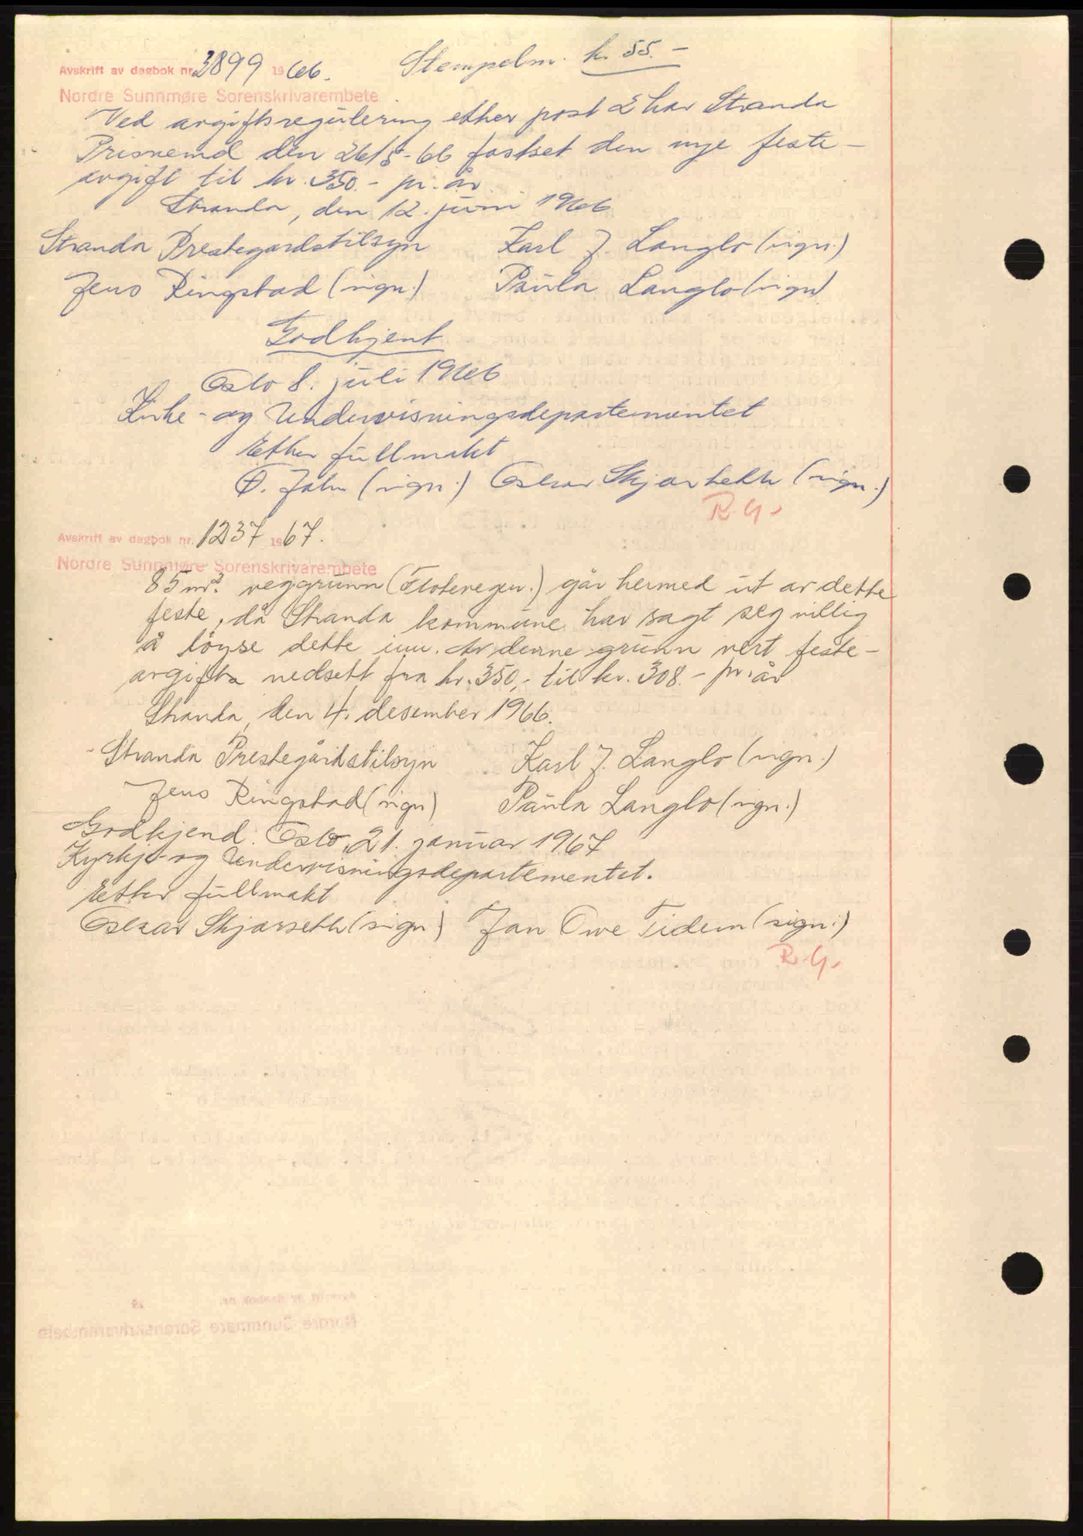 Stempelm. kr. 55.-
Avskrift av dagbok nr. 3899 1966.
Nordre Sunnmøre Sorenskrivarembete
Ved avgiftsregulering etter post 2 har Stranda
Prisnemd den 26/5-66 fastset den nye feste-
avgift til kr. 350.- pr. år.
Stranda, den 12. juni 1966
Stranda Prestegardstilsyn Karl J. Langlo (sign.)
Jens Ringstad (sign.) Paula Langlo (sign)
Godkjent
Oslo 8. juli 1966
Kirke- og Undervisningsdepartementet
Etter fullmakt
O. Jahn (sign.) Oskar Skjarseth (sign.)
R.G.
Avskrift av dagbok nr. 1237 1967.
Nordre Sunnmøre Sorenskrivarembete
85 m². veggrunn (Flotevegen.) går hermed ut av dette
feste, då Stranda kommune har sagt seg villig
å löyse dette inn. Av denne grunn vert feste-
avgifta nedsett fra kr. 350,- til kr. 308.- pr. år
Stranda, den 4. desember 1966.
Stranda Prestegårdstilsyn Karl J. Langlo (sign.)
Jens Ringstad (sign) Paula Langlo (sign.)
Godkjend: Oslo, 21. januar 1967
Kyrkje- og Undervisningsdepartementet.
Etter fullmakt
Oskar Skjarseth (sign) Jan Owe Tidem (sign.)
R.G.